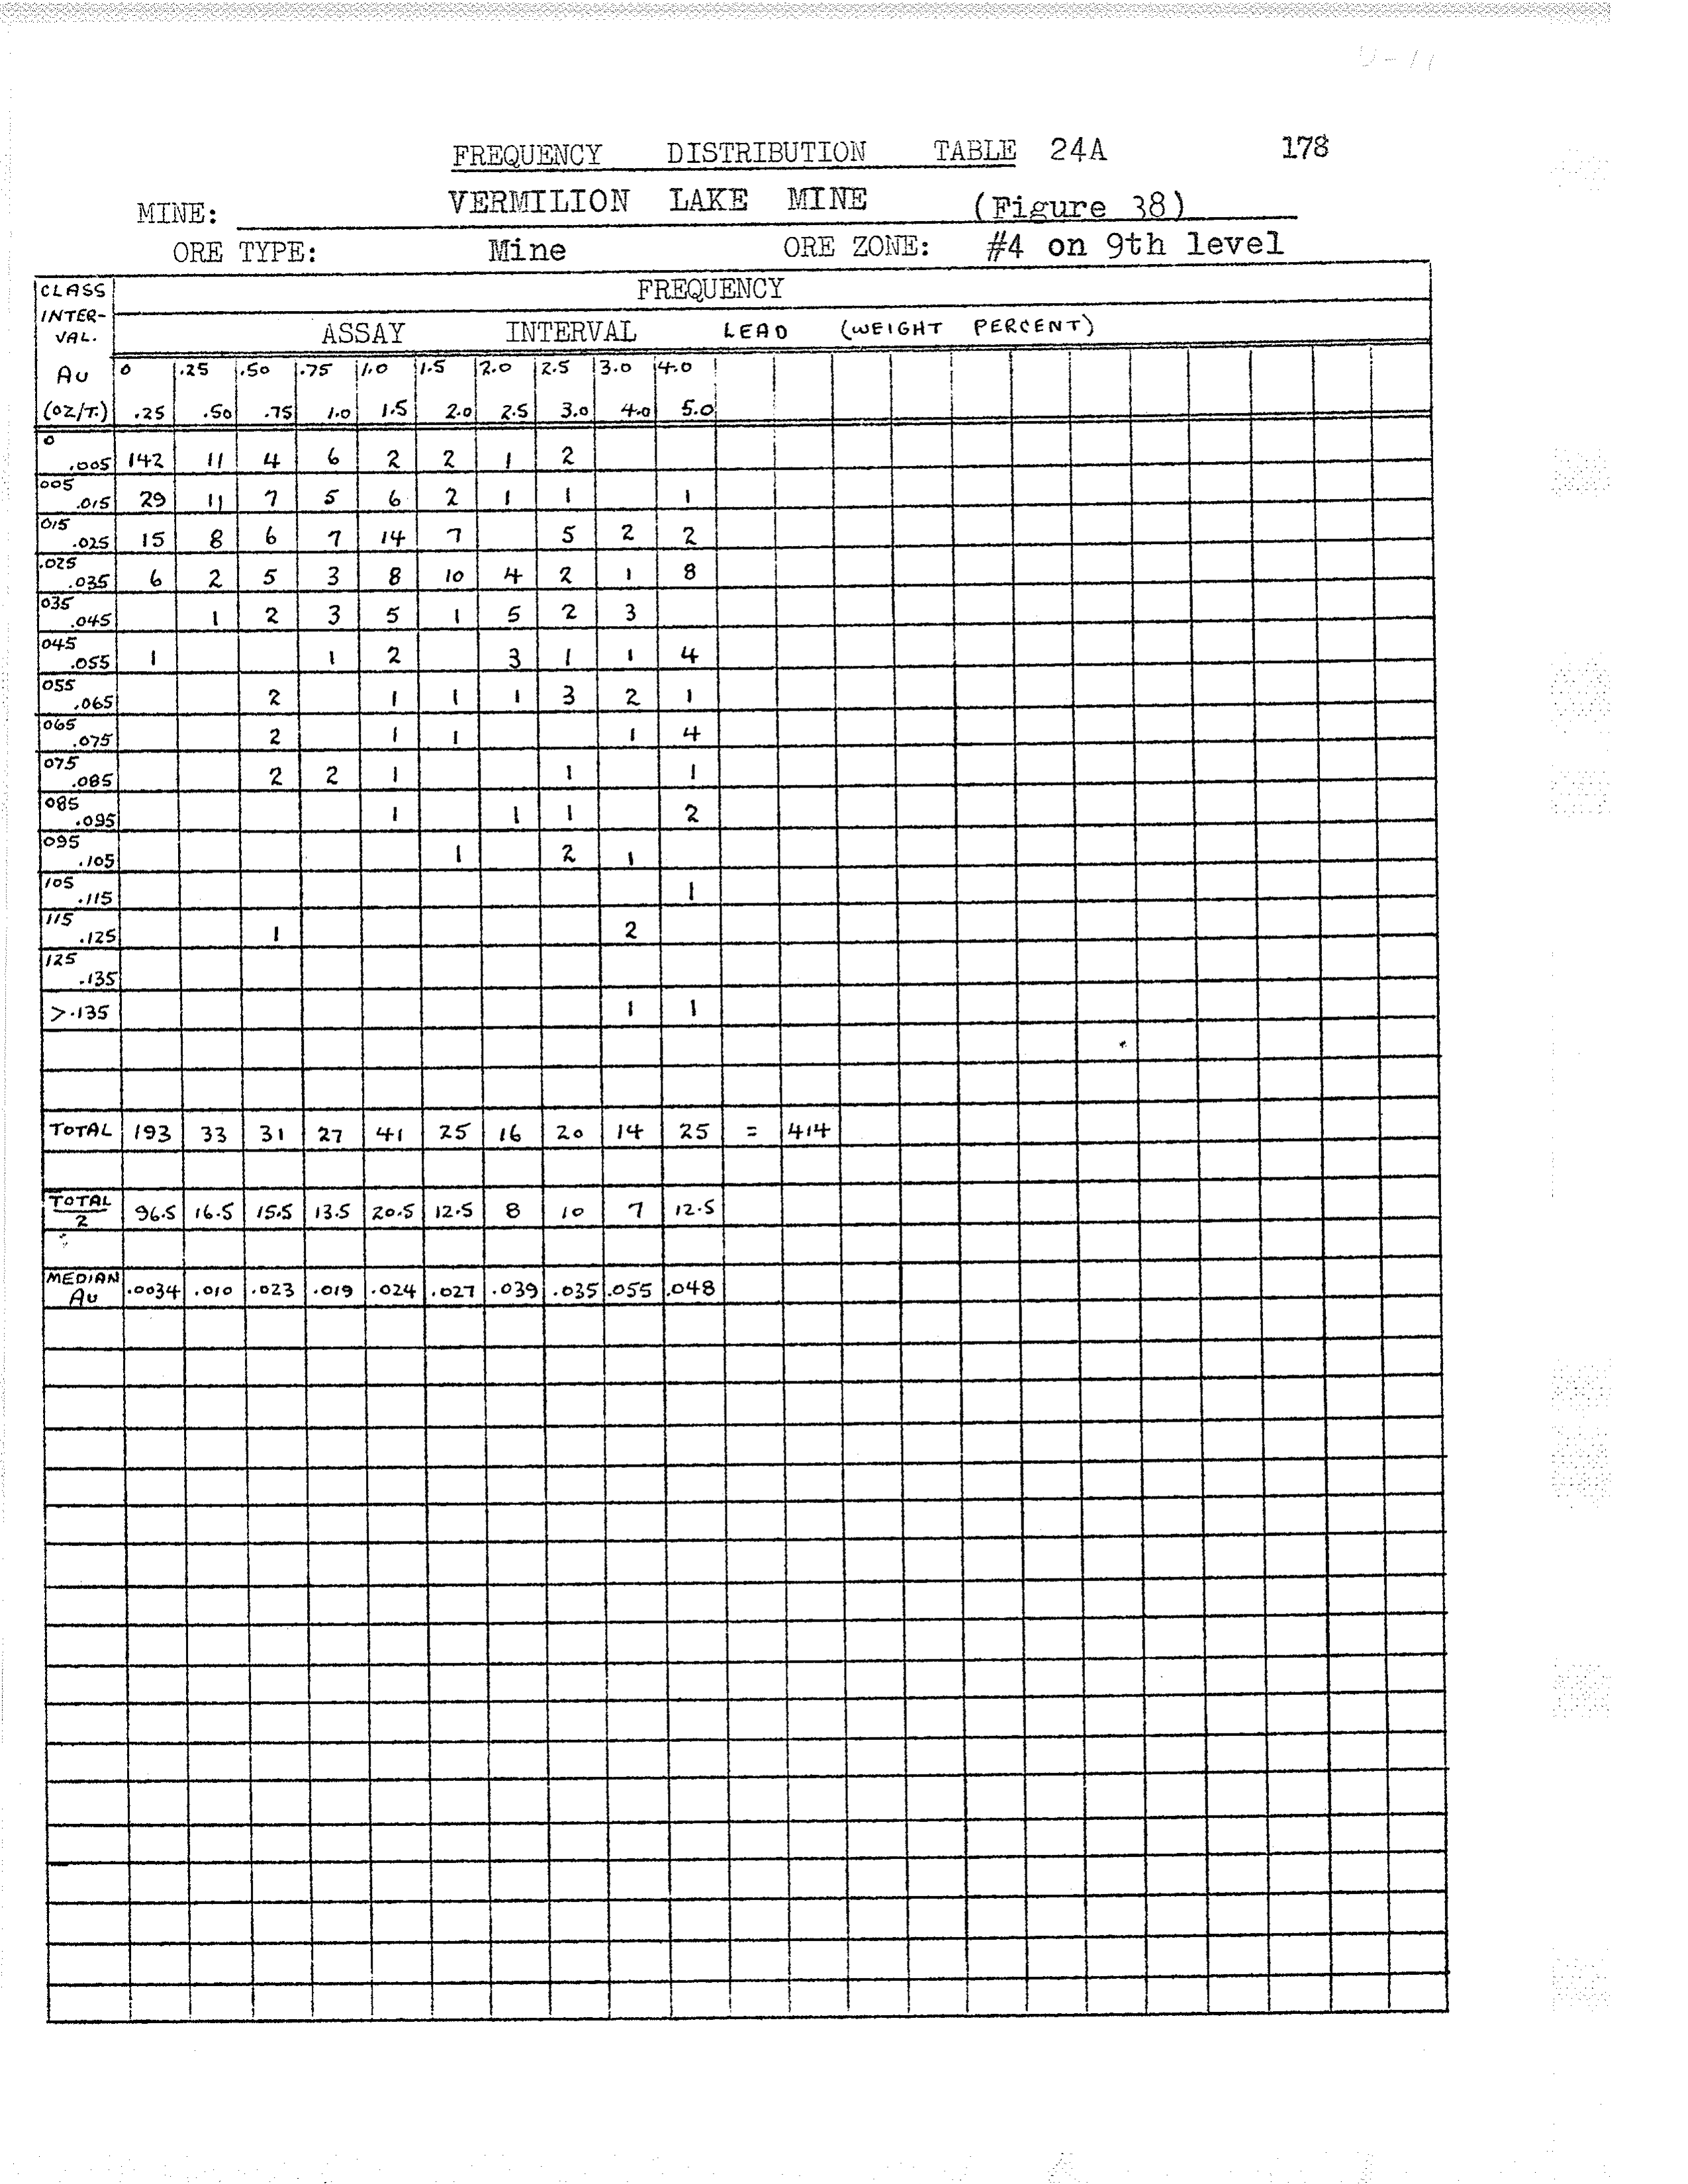 FREQUENCY DISTRIBUTION TABLE 24A 178
MINE: VERMILION LAKE MINE (Figure 38)
ORE TYPE: Mine ORE ZONE: #4 on 9th level
CLASS INTER- VAL. FREQUENCY
ASSAY INTERVAL LEAD (WEIGHT PERCENT)
Au 0 .25 .50 .75 1.0 1.5 2.0 2.5 3.0 4.0
(OZ/T.) .25 .50 .75 1.0 1.5 2.0 2.5 3.0 4.0 5.0
0
.005 142 11 4 6 2 2 1 2
005
.015 29 11 7 5 6 2 1 1 1
015
.025 15 8 6 7 14 7 5 2 2
.025
.035 6 2 5 3 8 10 4 2 1 8
035
.045 1 2 3 5 1 5 2 3
045
.055 1 1 2 3 1 1 4
055
.065 2 1 1 1 3 2 1
065
.075 2 1 1 1 4
075
.085 2 2 1 1 1
085
.095 1 1 1 2
095
.105 1 2 1
105
.115 1
115
.125 1 2
125
.135
>.135 1 1
TOTAL 193 33 31 27 41 25 16 20 14 25 = 414
TOTAL
2 96.5 16.5 15.5 13.5 20.5 12.5 8 10 7 12.5
MEDIAN
Au .0034 .010 .023 .019 .024 .027 .039 .035 .055 .048